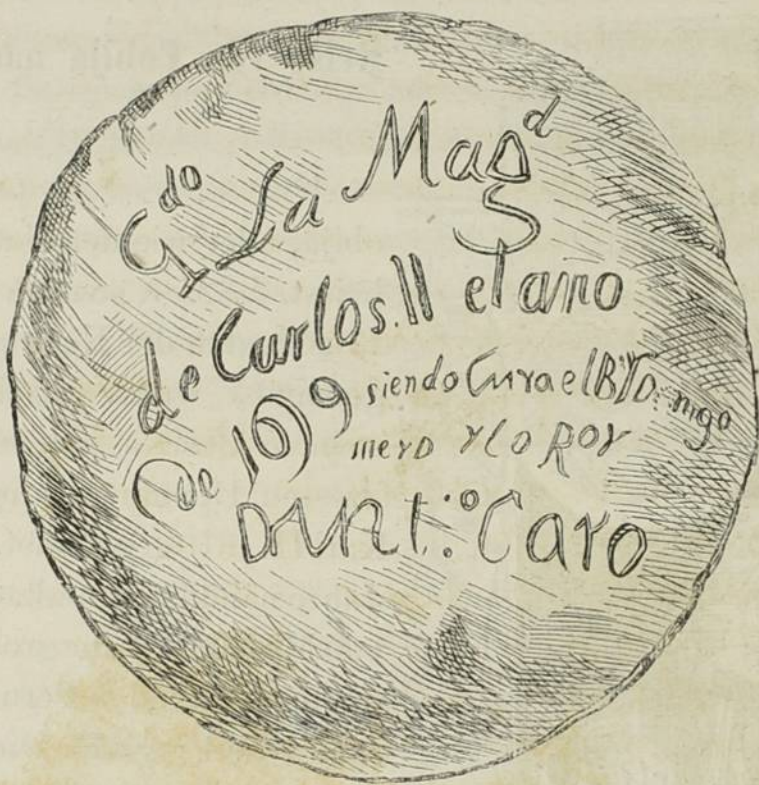 Gdo La Magd
de Carlos.II el ano
de 1679 siendo Cura el Br Do mingo
mero Y Lo Roy
D Ant.º Caro